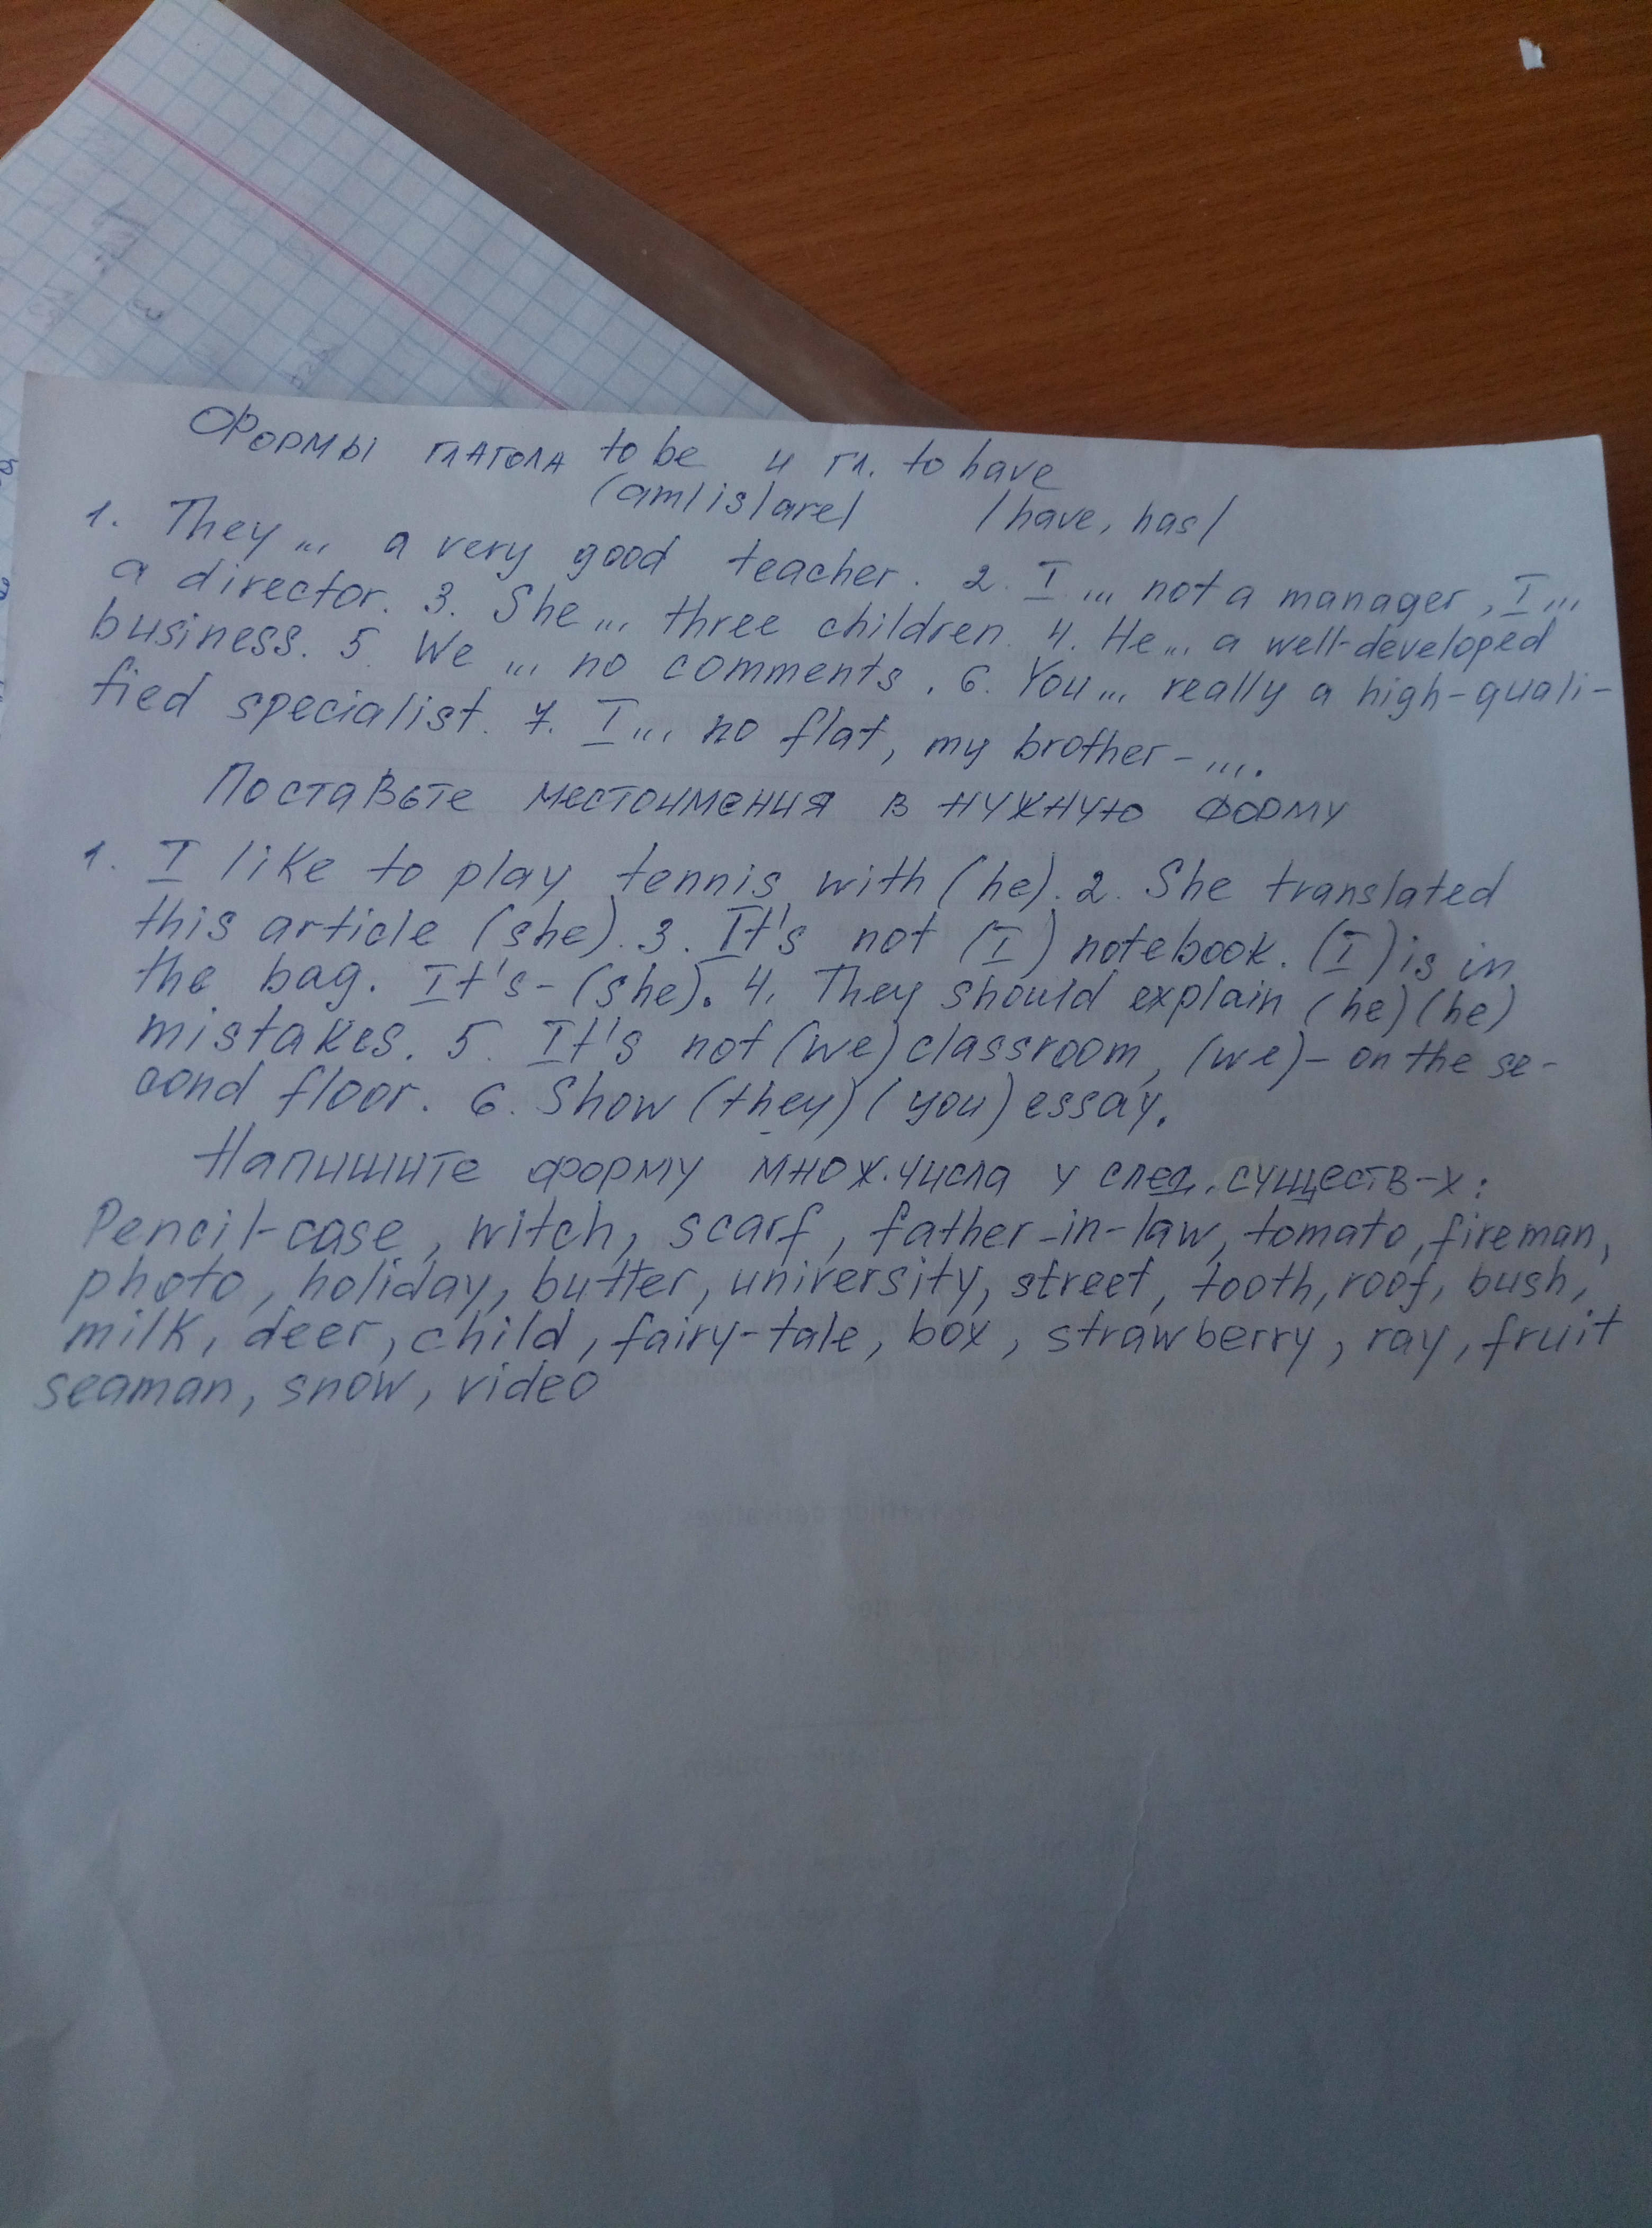 Формы глагола to be и гл. to have
(am/is/are/ /have, has/
1. They ... a very good teacher. 2. I ... not a manager, I ...
a director. 3. She ... three children. 4. He ... a well-developed
business. 5. We ... no comments. 6. You ... really a high-quali-
fied specialist. 7. I ... no flat, my brother - ....
Поставьте местоимения в нужную форму
1. I like to play tennis with (he). 2. She translated
this article (she). 3. It's not (I) notebook. (I) is in
the bag. It's - (she). 4. They should explain (he) (he)
mistakes. 5. It's not (we) classroom, (we) - on the se-
cond floor. 6. Show (they) (you) essay.
Напишите форму множ. числа у след. существ-х:
Pencil-case, witch, scarf, father-in-law, tomato, fireman,
photo, holiday, butter, university, street, tooth, roof, bush,
milk, deer, child, fairy-tale, box, strawberry, ray, fruit
seaman, snow, video